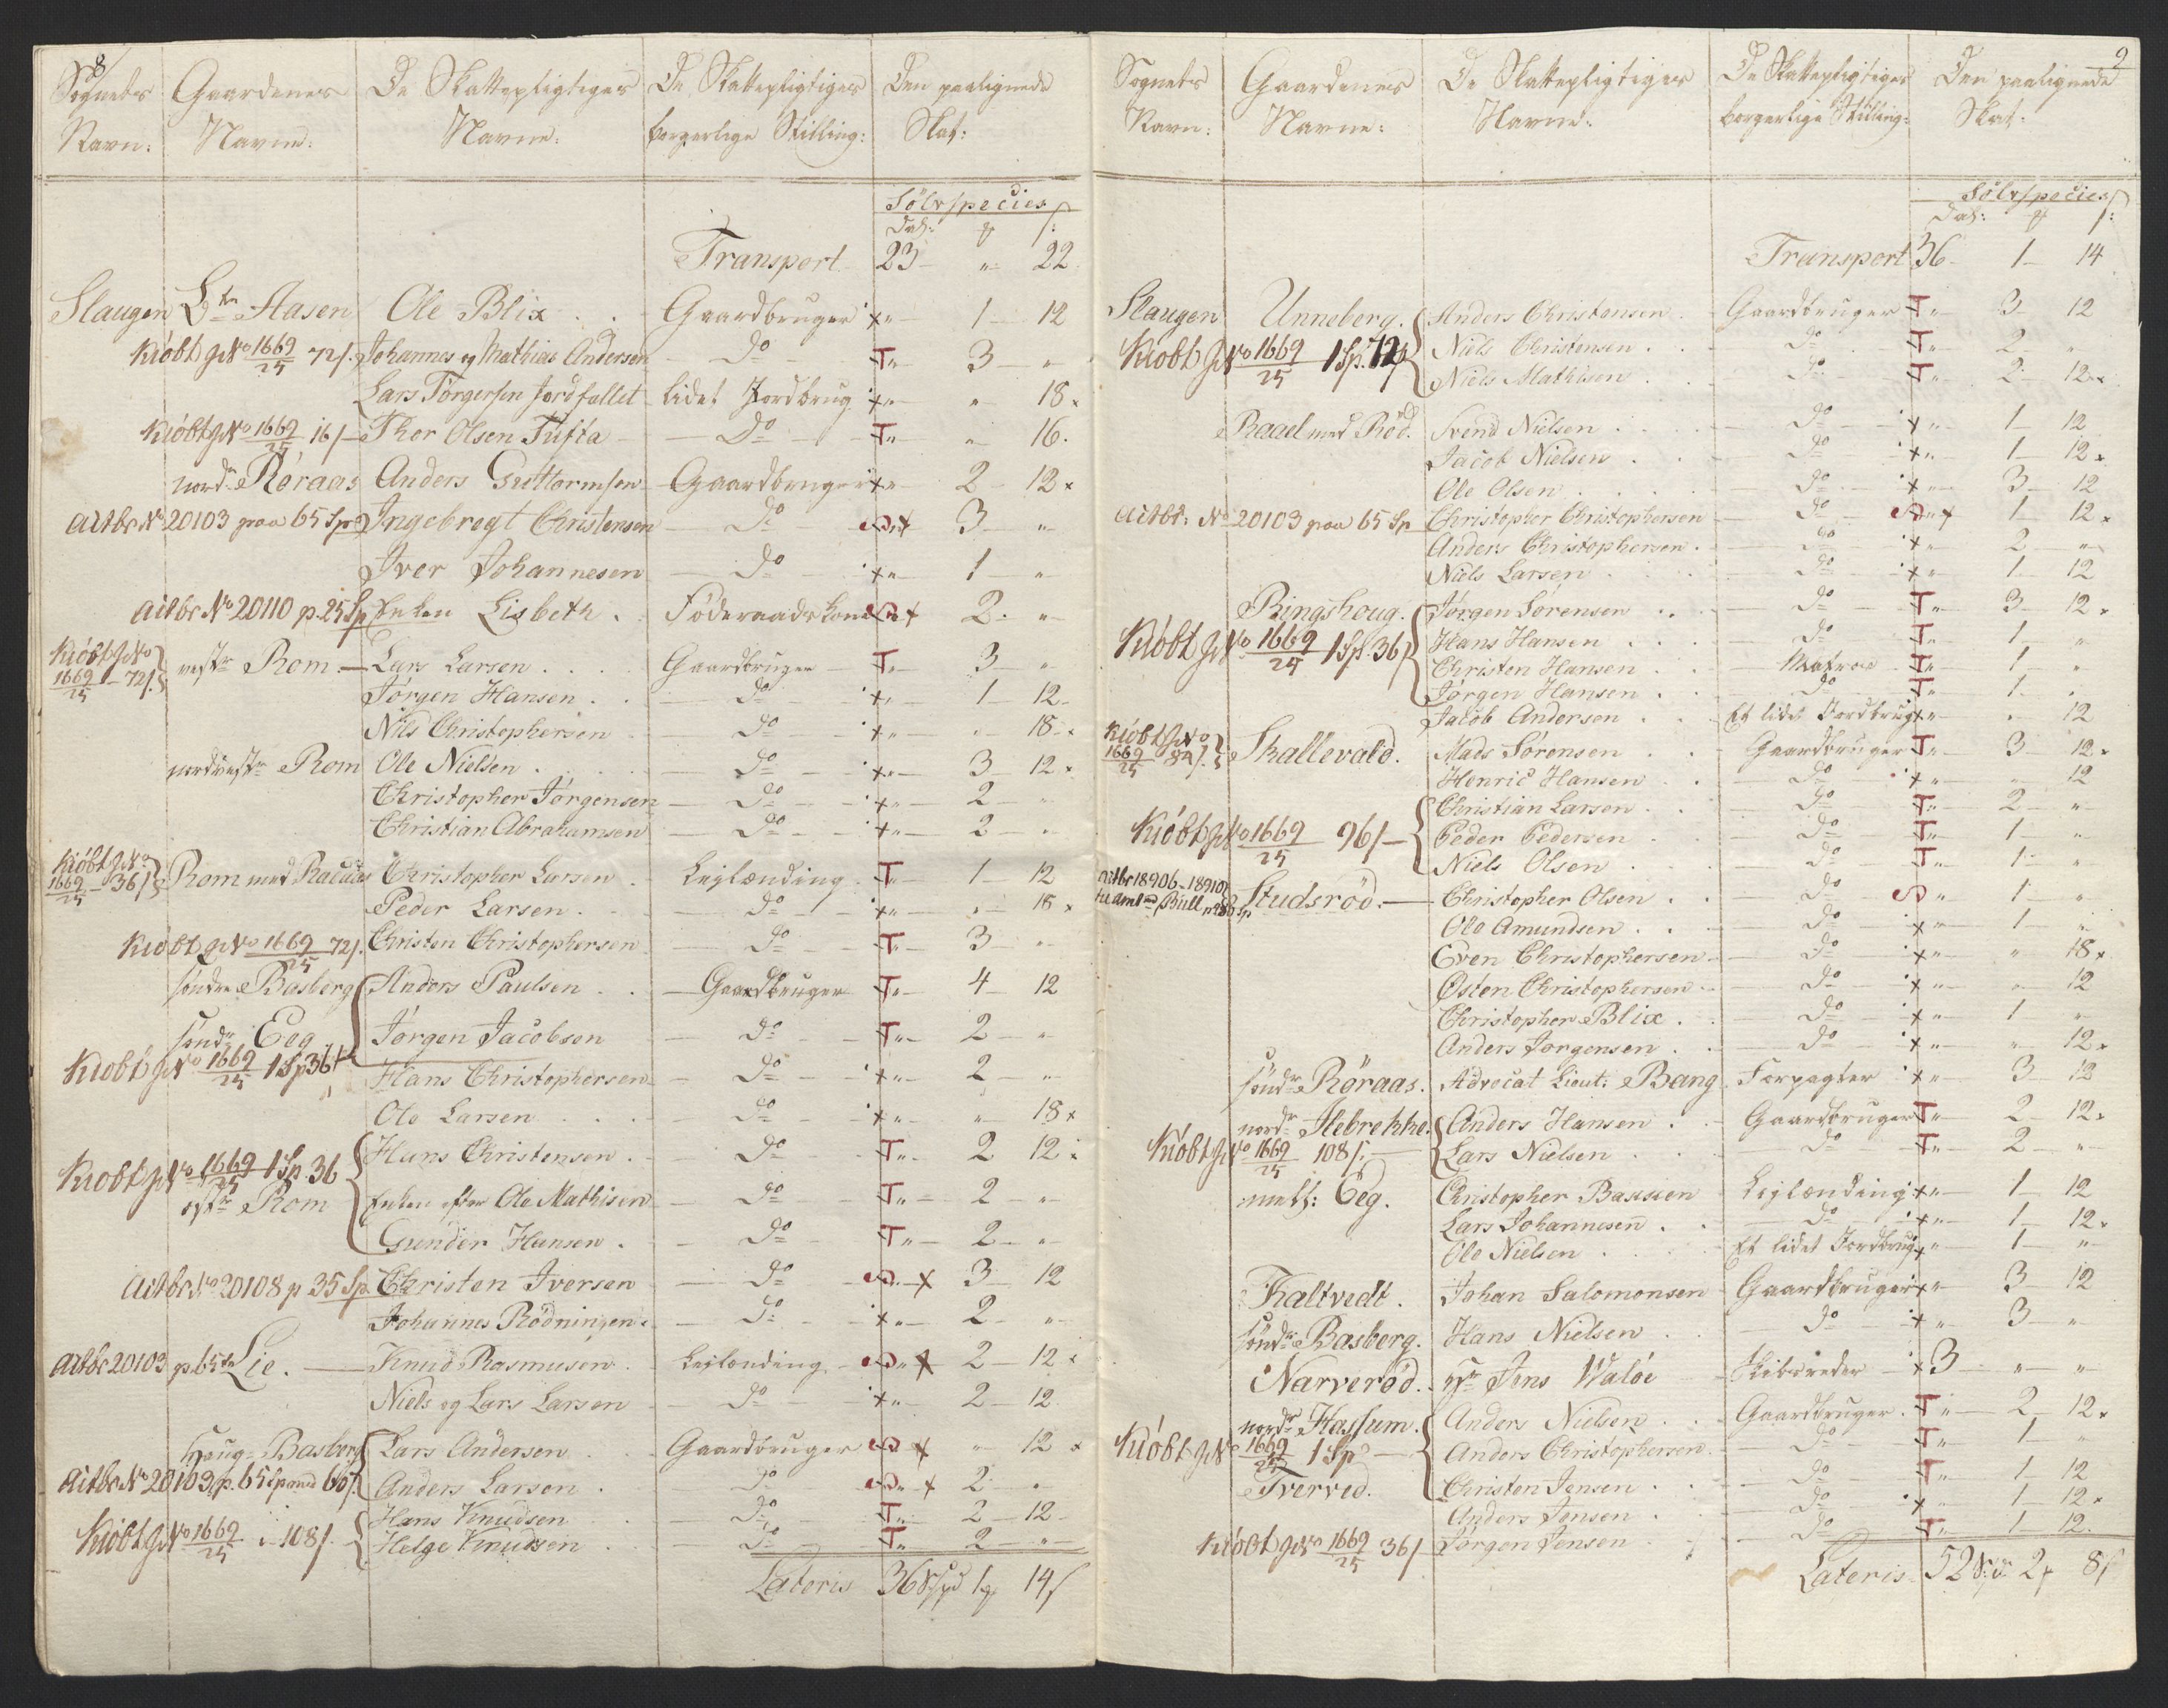 8/
Sognets Gaardenes De Skattepligtiges De Skattepligtiges Den paalignede
Navn: Navne: Navne: borgerlige Stilling: Skat:
Sölvspecies
Dal: ʒ ſ:
Transport 23 " 22
Slaugen L: Aasen Ole Blix . . Gaardbruger x" 1 12
Kiöbt J No 1669/25 72ſ. Johannes og Mathias Andersen Do T" 3 "
Lars Torgersen Jordfallet lidet Jordbrug x" " 18 x
Kiöbt J No 1669/25 16ſ Thor Olsen Tufta Do T" " 16.
nord: Röraas Anders Guttormsen Gaardbruger x" 2 12 x
Actbr No 20103 paa 65 Sp Ingebregt Christensen Do x 3 "
Iver Johannesen Do x" 1 "
Actbr No 20110 p. 25 Sp Enken Lisbeth . Föderaadskone x 2. "
Kiöbt J No 1669/25 72ſ. vestr Rom Lars Larsen . . . Gaardbruger T" 3 "
Jörgen Hansen . . Do x" 1 12
Nils Christophersen Do x" " 18 x
nordvestr Rom Ole Nielsen . . . Do x" 3 12 x
Christopher Jörgensen Do x" 2 "
Christian Abrahamsen Do x" 2 "
Kiöbt J No 1669/25 36ſ Rom med Raaaas Christopher Larsen . Leilænding T" 1 12
Peder Larsen . Do x" " 18 x
Kiöbt J No 1669/25 72ſ. Christen Christophersen Do T" 3 "
söndre Basberg Anders Paulsen . . Gaardbruger T" 4 12
söndr Eeg Jörgen Jacobsen Do T" 2 "
Kiöbt J No 1669/25 1 Sp 36ſ Hans Christophersen Do x" 2 "
Ole Larsen . . . Do x" " 18 x
Hans Christensen . Do T" 2 12 x
Kiöbt J No 1669/25 1 Sp. 36
östr Rom Enken efter Ole Mathisen Do T" 2 "
Gunder Hansen . Do T" 2 "
Actbr No 20108 p 35 Sp. Christen Iversen Do x 3 12
Johannes Rödningen . Do x" 2 "
Actbr 20103 p 65 Lie. Knud Rasmusen . Leilænding x 2 12 x
Niels og Lars Larsen Do x" 2 12
Houg-Basberg Lars Andersen . . Gaardbruger x " 12 x
Actbr No 20103 p. 65 Sp med 60ſ. Anders Larsen . Do x 2 "
Hans Knudsen . . Do T" 2 12
Kiöbt J No 1669/25 108ſ. Helge Knudsen . . Do T" 2 "
Lateris 36 Spd 1 14ſ
9
Sognets Gaardenes De Skattepligtiges De Skattepligtiges Den paalignede
Navn: Navne: Navne: borgerlige Stilling: Skat:
Sölvspecies
Dal: ʒ ſ:
Transport 36 1 14
Slaugen Unneberg. Anders Christensen . Gaardbruger T" 3 12
Kiöbt J No 1669/25 1 Sp. 12ſ Niels Christensen . . Do T" 2 "
Niels Mathisen . Do T" 2 12 x
Raael med Röd. Svend Nielsen . . . Do x" 1 12
Jacob Nielsen . . Do x" 1 12 x
Ole Olsen . . . . Do x" 3 12
Actbr: No 20103 paa 65 Sp Christopher Christophersen Do x 1 12 x
Anders Christophersen . Do x" 2 "
Niels Larsen . . Do x" 1 12
Ringshoug. Jörgen Sörensen . . Do T" 3 12 x
Kiöbt J No 1669/25 1 Sp. 36ſ Hans Hansen . . . Do T" 1 "
Christen Hansen . . Matros T" 1 "
Jörgen Hansen . . Do T" 1 "
Jacob Andersen . . Et lidet Jordbrug x" " 12
Kiöbt J No 1669/25 84ſ. Skallevald. Mads Sörensen . . Gaardbruger T" 3 12 x
Henric Hansen . . Do x" " 12
Christian Larsen . . Do T" 2 "
Kiöbt J No 1669/25 96ſ Peder Pedersen . . Do T" 1 "
Niels Olsen . . Do T" 1 "
Actbr 18906-18910 Studsröd. Christopher Olsen . . Do " 1 "
Ole Amundsen . . . Do x" 1 "
Even Christophersen Do x" " 18 x
Osten Christophersen Do x" " 12
Christopher Blix . . Do x" 1 "
Anders Jorgensen . . Do x" " 12 x
söndr Röraas. Advocat Lieut: Bang. Forpagter x" 3 12
nordr Ilebrekke. Anders Hansen . . Gaardbruger T" 2 12 x
Kiöbt J No 1669/25 108ſ. Lars Nielsen . . Do T" 2 "
mell: Eeg. Christopher Bassien Leilænding x" 1 12
Lars Johannesen . . Do x" 1 12 x
Ole Nielsen . . . Et lidet Jordbrug x" 1 "
Kaltvedt. Johan Salomonsen Gaardbruger x" 3 12
söndr Basberg. Hans Nielsen . . Do x" 3 "
Narveröd. Hr Jens Walöe Skibsreder x 3 " "
nordr Hassum. Anders Nielsen . . Gaardbruger T" 2 12 x
Kiöbt J No 1669/25 1 Sp Anders Christophersen . Do T" 1 "
Tverved. Christen Jensen . . Do T" 1 12
Anders Jensen . . Do x" 1 12 x
Kiöbt J No 1669/25 36ſ Jörgen Jensen . . Do T" 1 12.
Lateris 52 2 8ſ